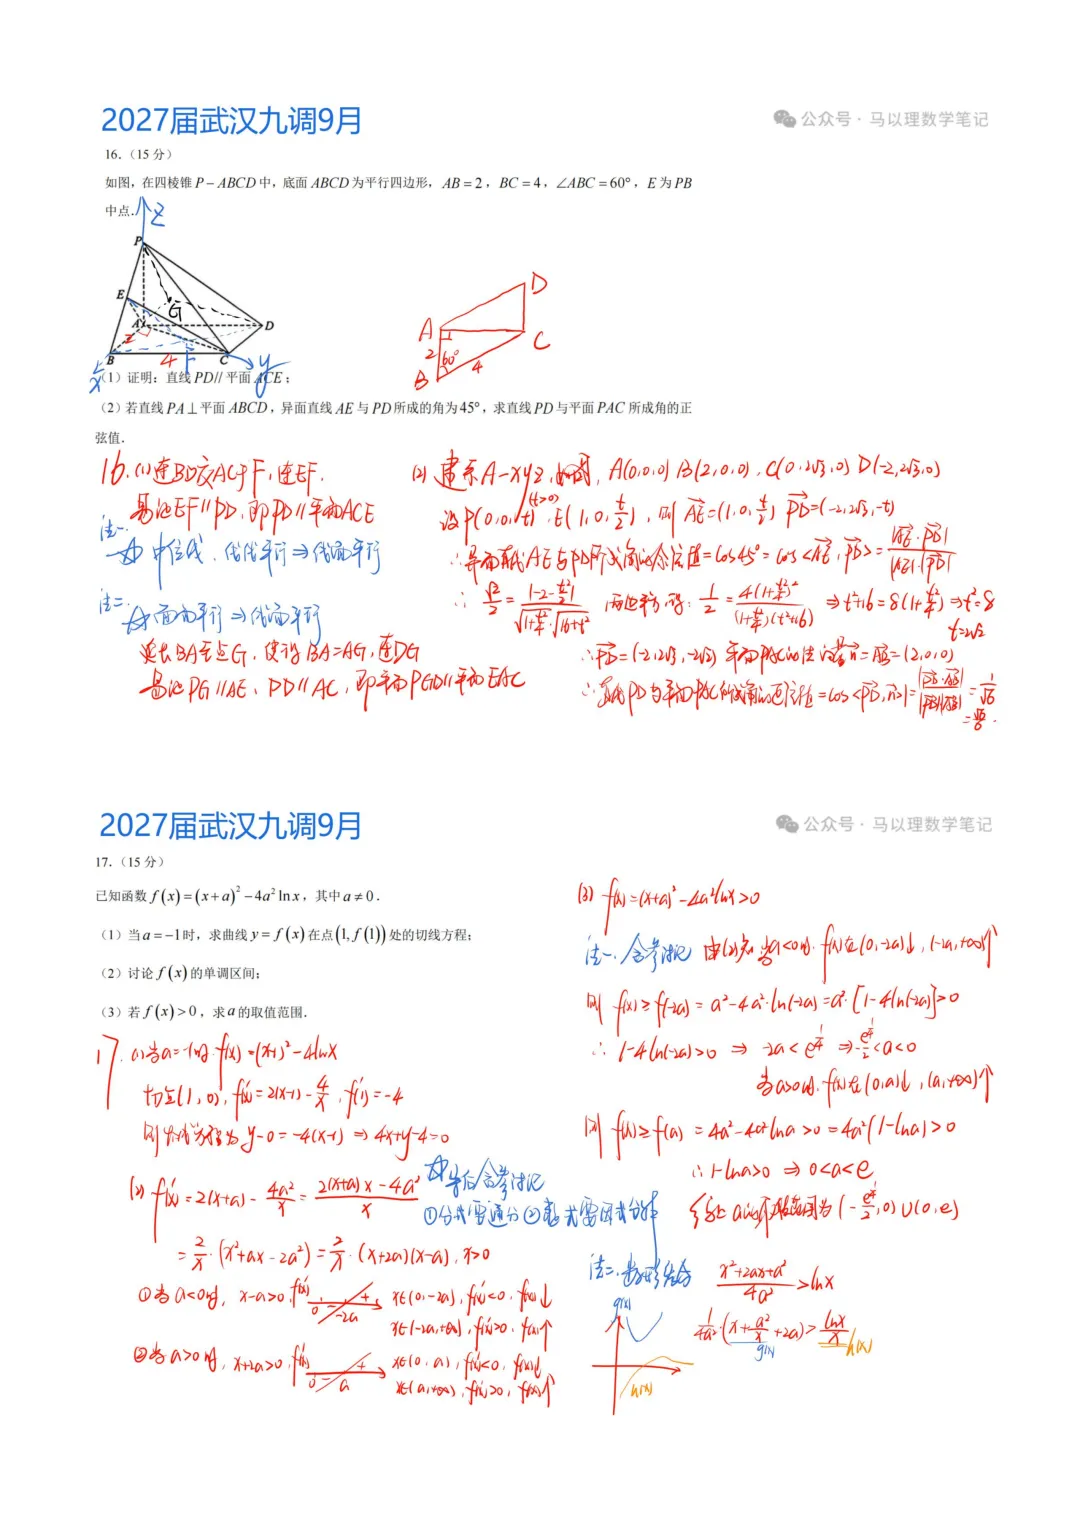 2027届武汉九调9月
公众号 · 马以理数学笔记
16.（15 分）
如图，在四棱锥 P－ABCD 中，底面 ABCD 为平行四边形，AB＝2，BC＝4，∠ABC＝60°，E 为 PB
中点.
z
P
E
G
A
D
2
F
B
4
C
x
y
D
A
C
2
60°
4
B
（1）证明：直线 PD// 平面 ACE；
（2）若直线 PA⊥平面 ABCD，异面直线 AE 与 PD 所成的角为 45°，求直线 PD 与平面 PAC 所成角的正
弦值.
16. (1) 连BD交AC于F，连EF.
易证EF∥PD，即PD∥平面ACE
法一
中位线，线线平行⇒线面平行
法二
面面平行⇒线面平行
延长BA至点G，使得BA=AG，连DG
易证PG∥AE，DG∥AC，即平面PGD∥平面EAC
(2) 建系A-xyz，如图，A(0,0,0) B(2,0,0), C(0,2√3,0) D(-2,2√3,0)
设P(0,0,t) (t>0), E(1,0,t/2), 则 AE=(1,0,t/2) PD=(-2,2√3,-t)
∴异面直线AE与PD所成角的余弦值=cos45°=cos<AE,PD>=|AE·PD|/|AE|·|PD|
∴ √2/2 = |-2-t²/2| / √(1+t²/4)·√(16+t²) 两边平方得: 1/2 = 4(1+t²/4)² / (1+t²/4)(t²+16) ⇒ t²+16=8(1+t²/4) ⇒ t²=8
t=2√2
∴PD=(-2,2√3,-2√2) 平面PAC的法向量n=AB=(2,0,0)
∴直线PD与平面PAC所成角的正弦值=cos<PD,n>=|PD·AB|/|PD||AB|=1/√6
=√6/6.
2027届武汉九调9月
公众号 · 马以理数学笔记
17.（15 分）
已知函数 f(x)=(x+a)²－4a² ln x，其中 a≠0.
（1）当 a=－1 时，求曲线 y=f(x) 在点 (1, f(1)) 处的切线方程；
（2）讨论 f(x) 的单调区间；
（3）若 f(x)>0，求 a 的取值范围.
17. (1) 当a=-1时. f(x)=(x-1)²-4lnx
切点(1,0), f'(x)=2(x-1)-4/x, f'(1)=-4
则切线方程为 y-0=-4(x-1) ⇒ 4x+y-4=0
(2) f'(x)=2(x+a)-4a²/x=2(x+a)x-4a²/x
求导后含参讨论
①分式需通分②整式需因式分解
=2/x·(x²+ax-2a²)=2/x·(x+2a)(x-a), x>0
①当a<0时, x-a>0, f'(x) 0 - -2a + x∈(0,-2a), f'(x)<0, f(x)↓
x∈(-2a,+∞), f'(x)>0, f(x)↑
②当a>0时, x+2a>0, f'(x) 0 - a + x∈(0,a), f'(x)<0, f(x)↓
x∈(a,+∞), f'(x)>0, f(x)↑
(3) f(x)=(x+a)²-4a²lnx>0
法一. 含参讨论 由(2)知 当a<0时. f(x)在(0,-2a)↓, (-2a,+∞)↑
则 f(x)≥f(-2a)=a²-4a²·ln(-2a)=a²·[1-4ln(-2a)]>0
∴ 1-4ln(-2a)>0 ⇒ -2a<e^(1/4) ⇒ -e^(1/4)/2<a<0
当a>0时. f(x)在(0,a)↓, (a,+∞)↑
则 f(x)≥f(a)=4a²-4a²lna>0=4a²(1-lna)>0
∴1-lna>0 ⇒ 0<a<e
综上 a的取值范围为 (-e^(1/4)/2,0)∪(0,e)
法二. 数形结合 x²+2ax+a²/4a²>lnx
1/4a²·(x+a²/x+2a)>lnx/x
g(x) h(x)
g(x)
h(x)